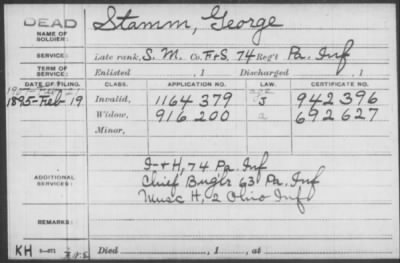 DEAD
Stamm, George
NAME OF
SOLDIER:
SERVICE:
Late rank, S. M. Co. F+S. 74 Reg't Pa. Inf
TERM OF
SERVICE:
Enlisted , 1 Discharged , 1
DATE OF FILING. CLASS. APPLICATION NO. LAW. CERTIFICATE NO.
1895-Feb 19 Invalid, 1164 379 J 942 396
Widow, 916 200 a 692627
Minor,
ADDITIONAL
SERVICES:
I+H, 74 Pa Inf
Chief Bugler 63 Pa. Inf
Music H, 2 Ohio Inf
REMARKS:
KH
Died , 1 , at